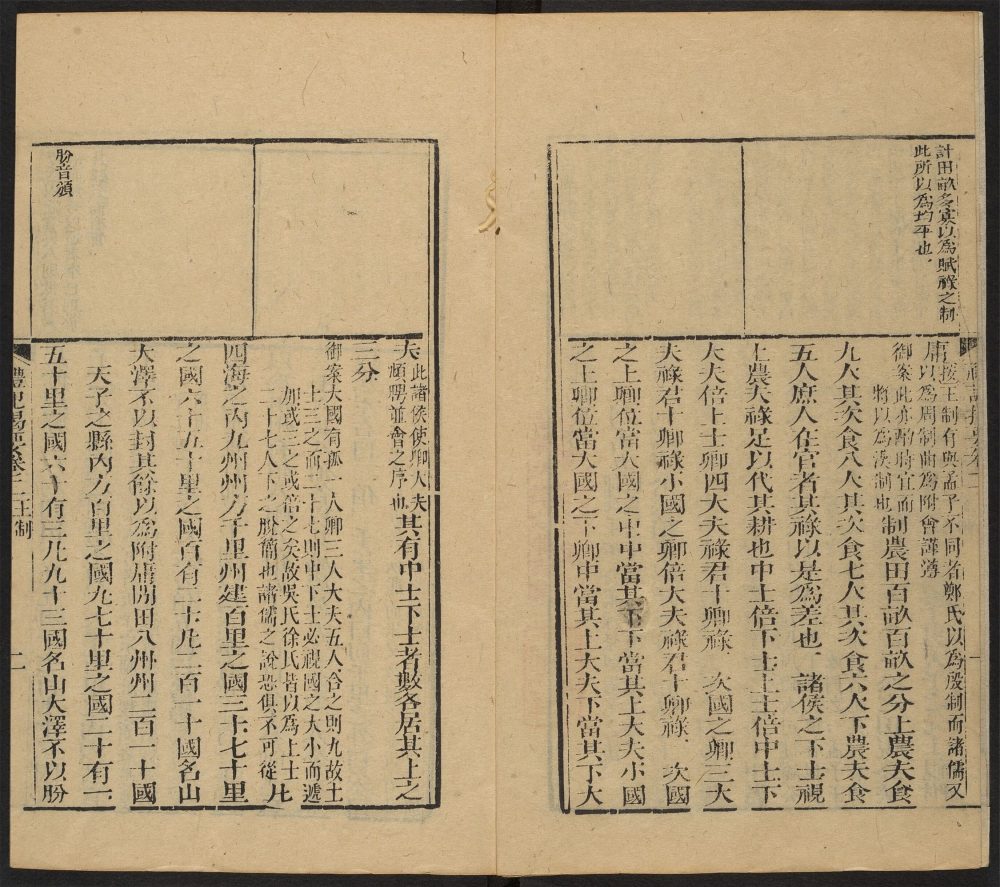 計田畝多寡以為賦祿之制
此所以為均平也
按王制有與孟子不同者鄭氏以為殷制而諸儒又
用以為周制曲為附會謹
御案此亦酌時宜而
將以為漢制也
制農田百畝百畝之分上農夫食
九人其次食八人其次食七人其次食六人下農夫食
五人庶人在官者其祿以是為差也諸侯之下士視
上農夫祿足以代其耕也中士倍下士上士倍中士下
大夫倍上士卿四大夫祿君十卿祿次國之卿三大
夫祿君十卿祿小國之卿倍大夫祿君十卿祿次國
之上卿位當大國之中中當其下下當其上大夫小國
之上卿位當大國之下卿中當其上大夫下當其下大
夫此諸侯使卿大夫
頫聘並會之序也
其有中士下士者數各居其上之
三分
御案大國有孤一人卿三人大夫五人合之則九故士
上三之而二十七則中下士必視國之大小而遞
加或三之或倍之矣故吳氏徐氏皆以為上士
二十七人下之脫簡也諸儒之說恐俱不可從
凡
四海之內九州州方千里州建百里之國三十七十里
之國六十五十里之國百有二十凡二百一十國名山
大澤不以封其餘以為附庸閒田八州州二百一十國
天子之縣內方百里之國九七十里之國二十有一
五十里之國六十有三凡九十三國名山大澤不以朌
朌音頒
禮記揭要卷三王制
二